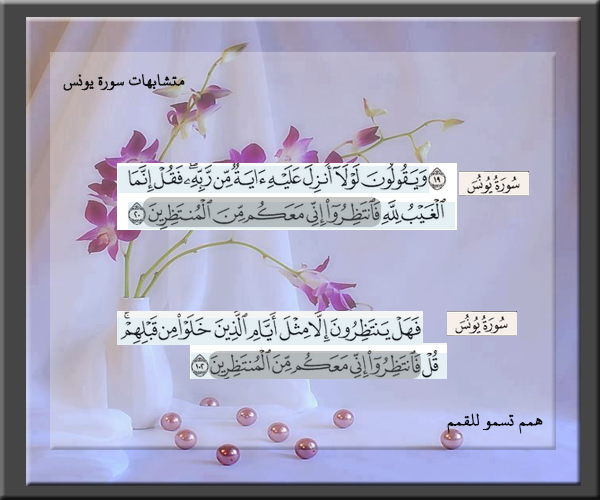 متشابهات سورة يونس
سُورَةُ يُونُسَ
١٩ وَيَقُولُونَ لَوْلَآ أُنزِلَ عَلَيْهِ ءَايَةٌ مِّن رَّبِّهِۦ ۖ فَقُلْ إِنَّمَا
ٱلْغَيْبُ لِلَّهِ فَٱنتَظِرُوٓا۟ إِنِّى مَعَكُم مِّنَ ٱلْمُنتَظِرِينَ ٢٠
سُورَةُ يُونُسَ
فَهَلْ يَنتَظِرُونَ إِلَّا مِثْلَ أَيَّامِ ٱلَّذِينَ خَلَوْا۟ مِن قَبْلِهِمْ ۚ
قُلْ فَٱنتَظِرُوٓا۟ إِنِّى مَعَكُم مِّنَ ٱلْمُنتَظِرِينَ ١٠٢
همم تسمو للقمم